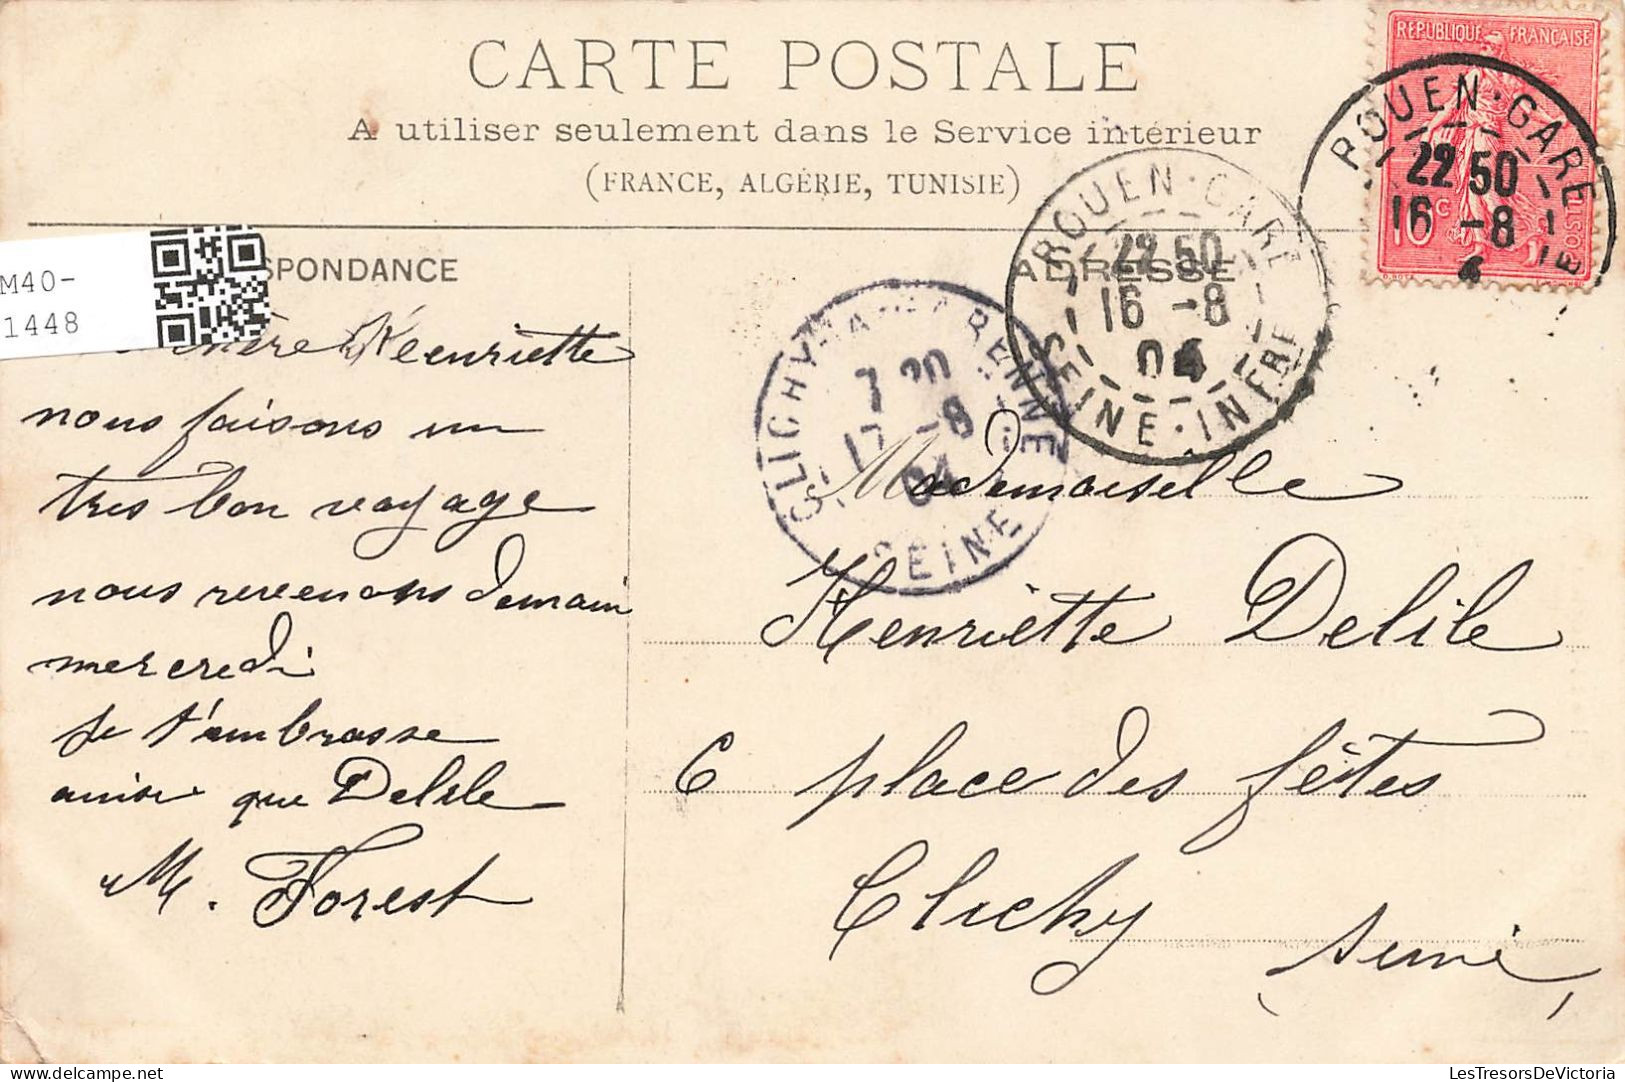 CARTE POSTALE
A utiliser seulement dans le Service intérieur
(FRANCE, ALGÉRIE, TUNISIE)
RÉPUBLIQUE FRANÇAISE
10 c
POSTES
ROUEN-GARE
22 50
16 -8
ROUEN-GARE
22 50
16 -8
04
SEINE-INFRE
CLICHY-LA-GARENNE
7 20
17 -8
04
SEINE
M40-
1448
SPONDANCE
Henriette
nous faisons un
tres bon voyage
nous revenons demain
mercredi
Je t'embrasse
ainsi que Delile
M. Forest
ADRESSE
Mademoiselle
Henriette Delile
6 place des fêtes
Clichy
(Seine)
delcampe.net
LesTresorsDeVictoria